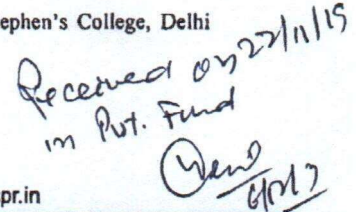 ephen's College, Delhi
Received on 22/11/19
in Pvt. Fund
pr.in